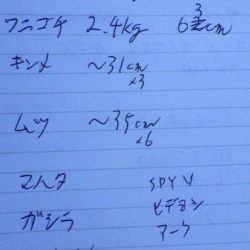 ワニゴチ 2.4kg 63cm
キンメ ~31cm
×3
ムツ ~35cm
×6
マハタ SPYV
ガシラ ヒデヨシ
アーク